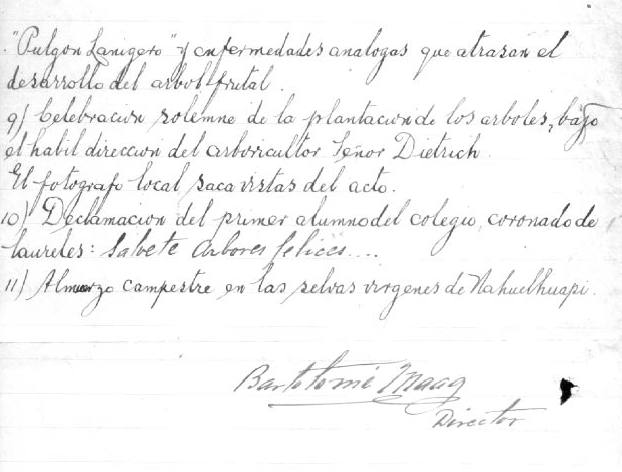 "Pulgon Lanigero" y enfermedades analogas que atrasan el
desarrollo del arbol frutal.
9) Celebracion solemne de la plantacion de los arboles, bajo
el habil direccion del arboricultor Señor Dietrich.
El fotografo local saca vistas del acto.
10) Declamacion del primer alumno del colegio, coronado de
laureles: Salvete Arbores felices....
11) Almuerzo campestre en las selvas virgenes de Nahuelhuapi.
Bartolomé Maag
Director